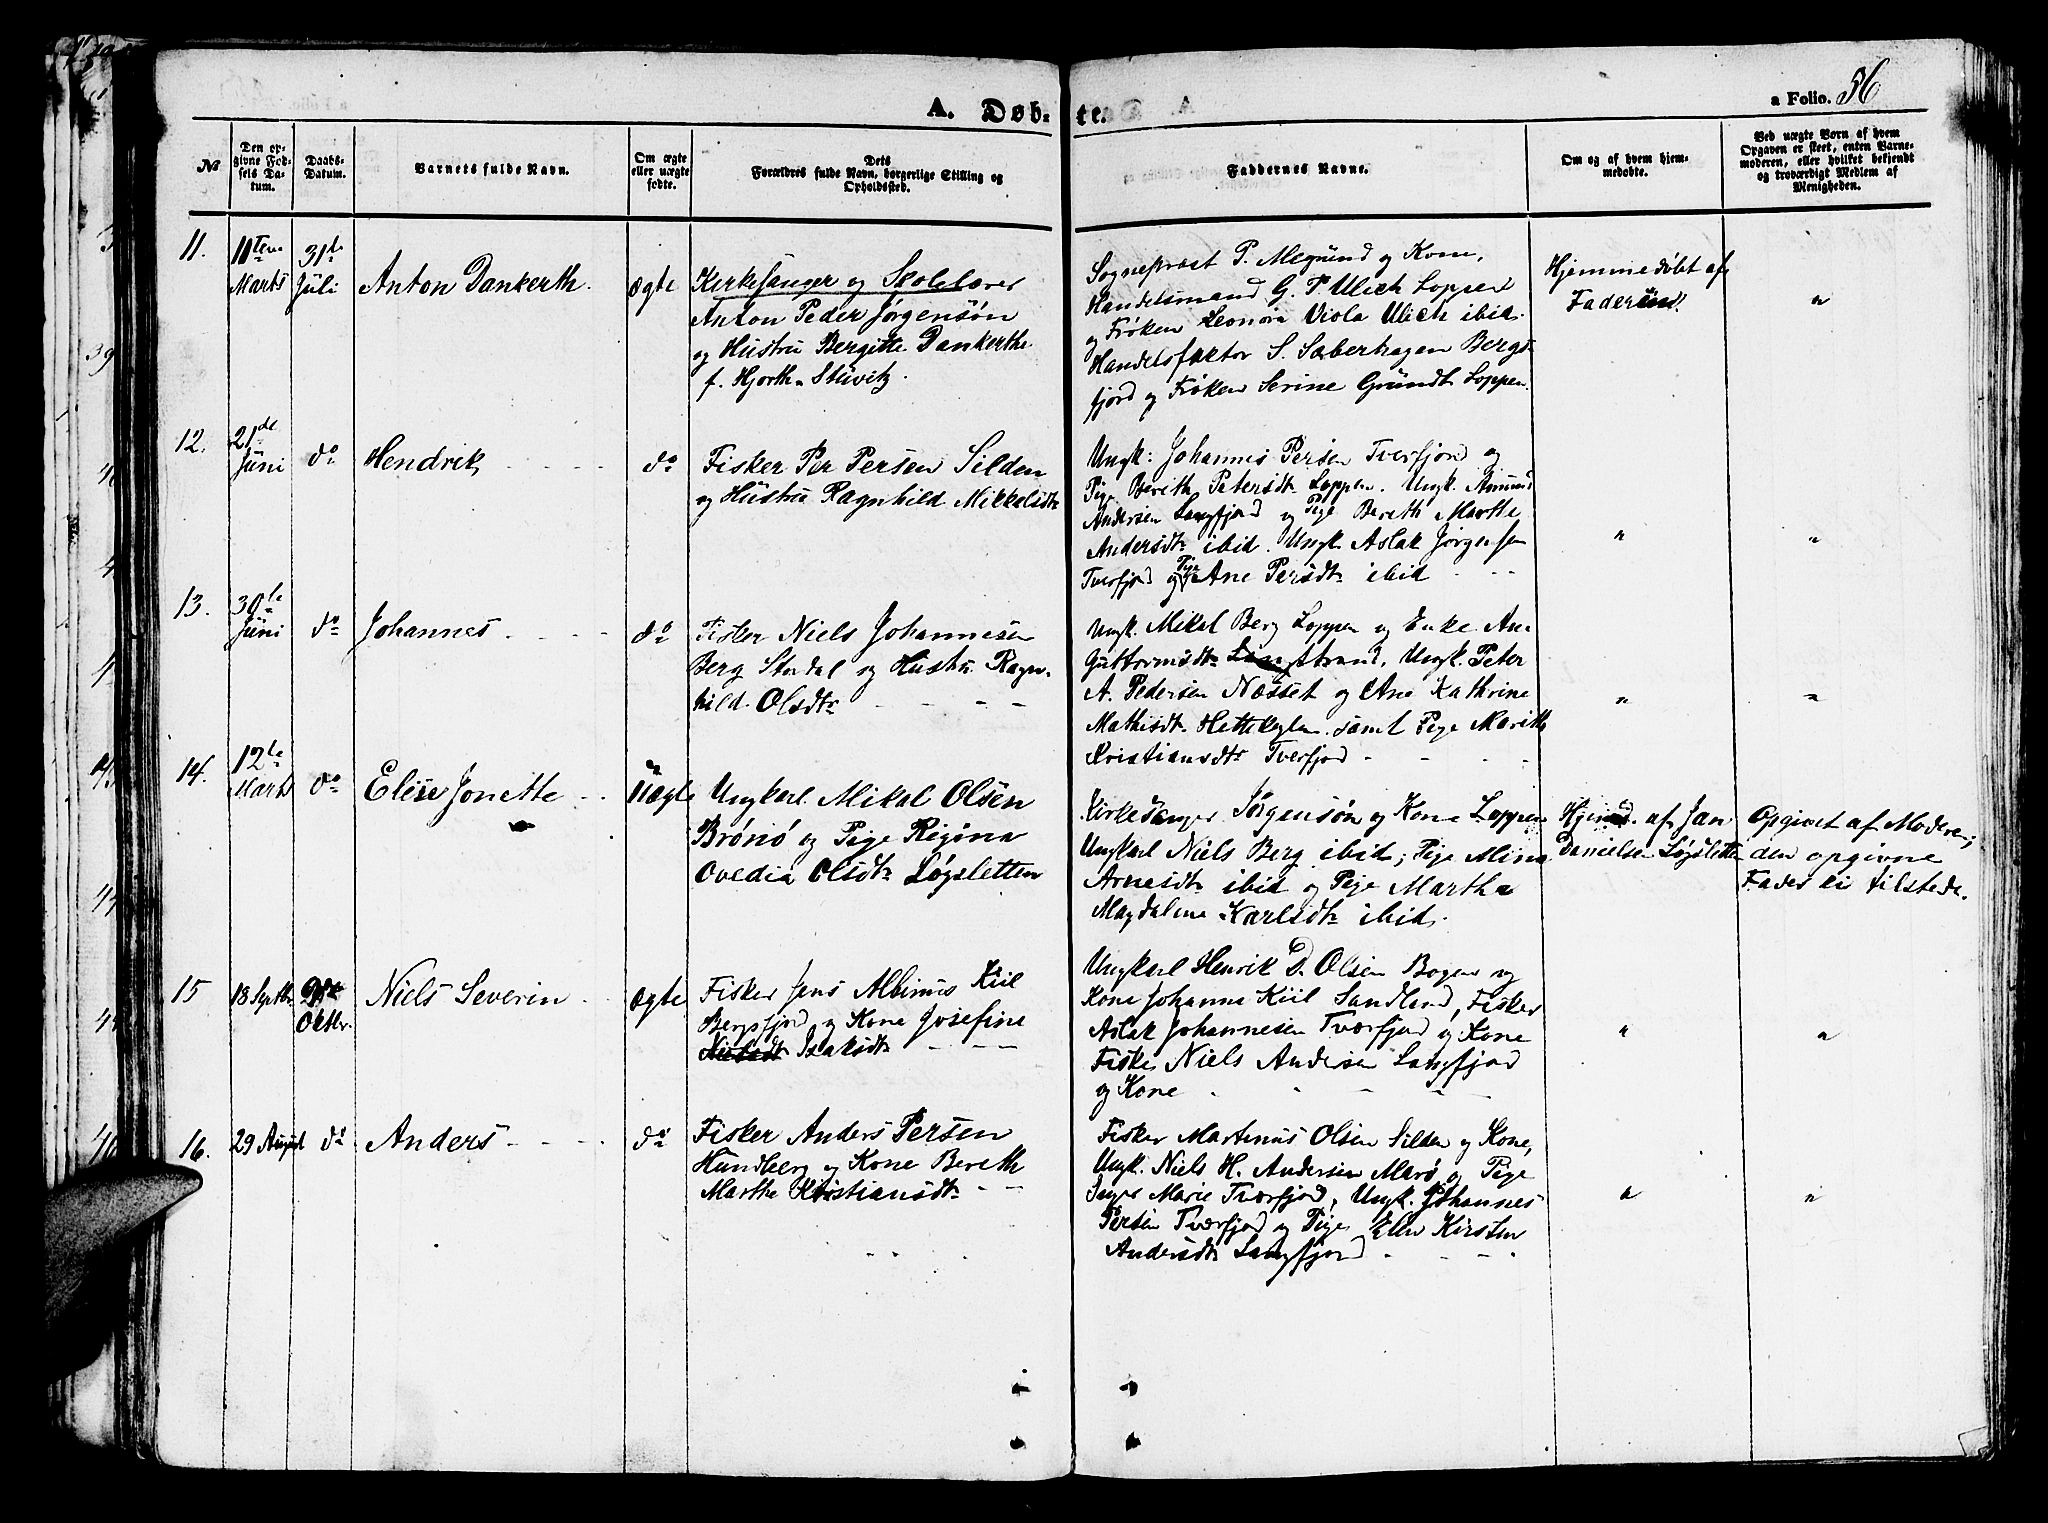 A. Døb-
te.
a Folio. 56
No
Den op-
givne Fød-
sels Da-
tum.
Daabs-
Datum.
Barnets fulde Navn.
Om ægte
eller uægte
fødte.
Dets
Forældres fulde Navn, borgerlige Stilling og
Opholdssted.
Faddernes Navne.
Om og af hvem hjem-
medøbte.
Ved uægte Børn af hvem
Opgaven er skeet, enten Barne-
moderen, eller hvilket bekjendt
og troværdigt Medlem af
Menigheden.
11.
11te
Marts
31te
Juli
Anton Dankerth.
ægte
Kirkesanger og Skolelærer
Anton Peder Jørgensøn
og Hustru Bergitte Dankerthe
f. Hjorth-Stüvitz.
Sognepræst P. og Kone,
Handelsmand G. P. Ulich Loppen
og Frøken Leonora Viola Ulich ibid.
Handelsfaktor S. Saberhagen Bergs-
fjord og Frøken Serine Gründt Loppen.
Hjemmedøbt af
Faderen.
"
12.
21de
Juni
do
Hendrik
do
Fisker Per Persen Silden
og Hustru Ragnhild Mikkelsdtr
Ungk: Johannes Persen Tverfjord og
Pige Berith Petersdtr Loppen. Ungk. Amund
Andersen Langfjord og Pige Bereth Marthe
Andersdtr ibid. Ungk. Aslak Jørgensen
Tverfjord og Pige Ane Persdtr ibid
"
"
13.
30te
Juni
do
Johannes
do
Fisker Niels Johannesen
Berg Stordal og Hustru Ragn-
hild Olsdtr
Ungk. Mikal Berg Loppen og Enke An-
Guttormsdtr Langstrand, Ungk. Peter
A. Pedersen Næsset og Ane Kathrine
Mathisdtr samt Pige Marith
Kristiansdtr Tverfjord
"
"
14.
12te
Marts
do
Elise Jonette
Uægte
Ungkarl Mikal Olsen
Brönö og Pige Regina
Ovedia Olsdtr Løgsletten
Kirkesanger Jørgensøn og Kone Loppen
Ungkarl Niels Berg ibid; Pige Mina
Arnesdtr ibid og Pige Martha
Magdalene Karlsdtr ibid.
Hjemd. af Jan
Danielsen Løgsletten
Opgivet af Moderen;
den opgivne
Fader ei tilstede.
15
18 Septbr
Oktbr.
Niels Severin
ægte
Fisker Jens Albinus Kiil
Bergsfjord og Kone Josefine
Isaksdtr
Ungkarl Henrik D. Olsen Bogen og
Kone Johanna Kiil Sandland, Fisker
Aslak Johannesen Tværfjord og Kone
Fisker Niels Andersen Langfjord
og Kone
"
"
16.
29 August
do
Anders
do
Fisker Anders Persen
Hundberg og Kone Bereth
Marthe Kristiansdtr
Fisker Martinus Olsen Silden og Kone,
Ungk. Niels H. Andersen Marö og Pige
Inger Marie Tværfjord, Ungk. Johannes
Persen Tværfjord og Pige Elen Kirsten
Andersdtr Langfjord
"
"